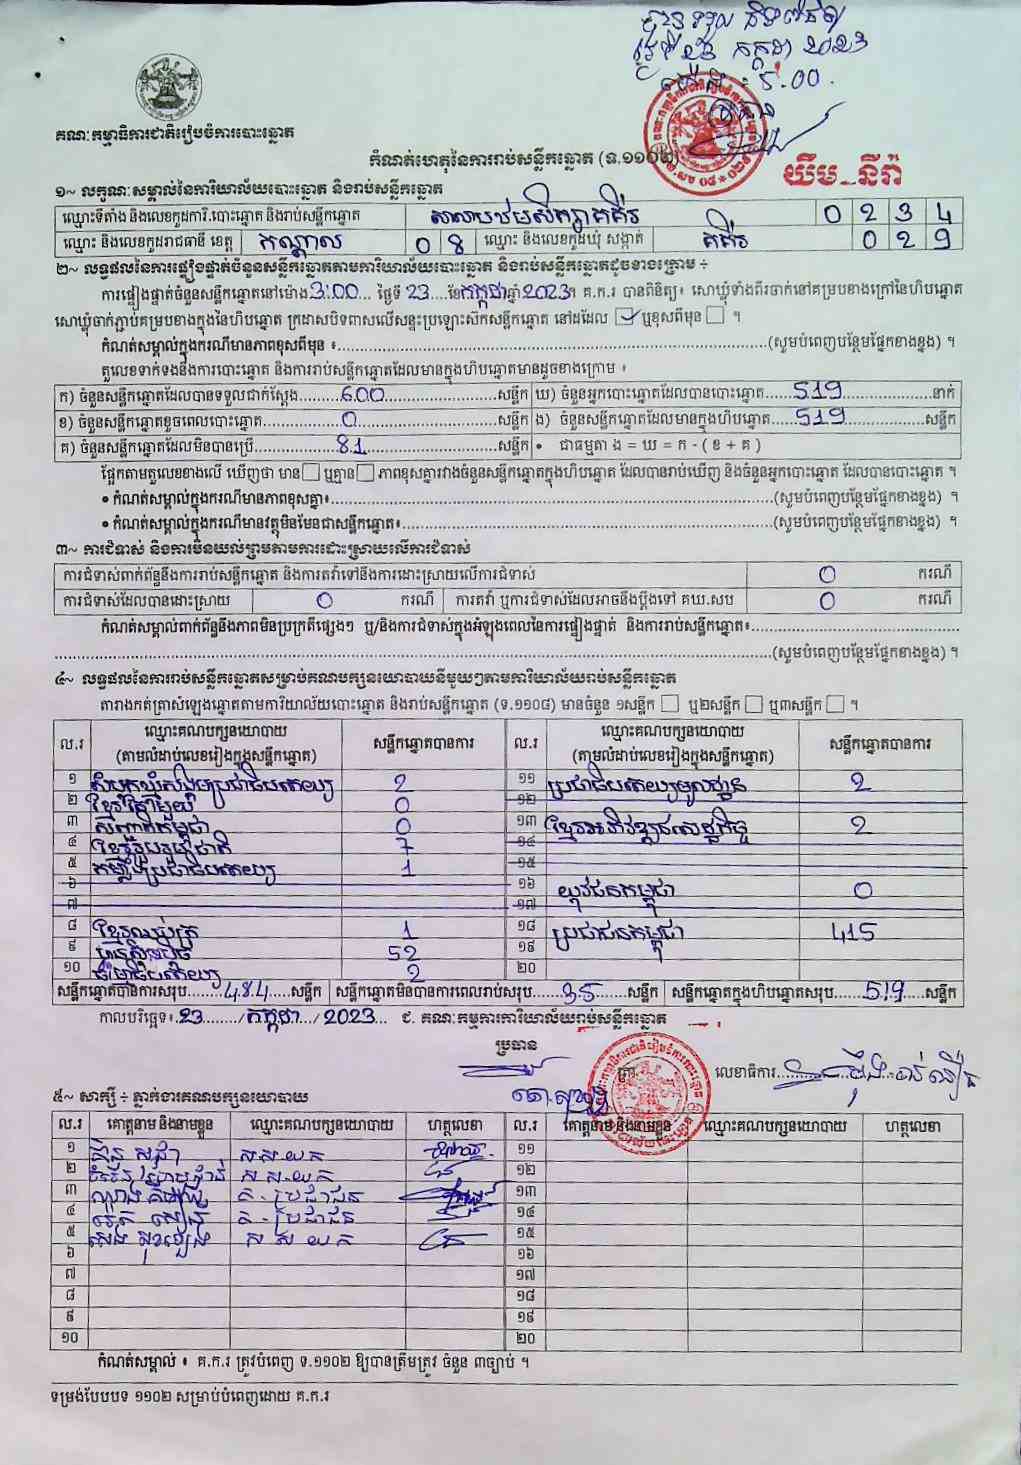 5.00
គណៈកម្មាធិការជាតិរៀបចំការបោះឆ្នោត
កំណត់ហេតុនៃការរាប់សន្លឹកឆ្នោត (ទ.១១០២)
យឹម នីរ៉ា
១~ លក្ខណៈសម្គាល់នៃការិយាល័យបោះឆ្នោត និងរាប់សន្លឹកឆ្នោត
ឈ្មោះទីតាំង និងលេខកូដការិ.បោះឆ្នោត និងរាប់សន្លឹកឆ្នោត សាលាបឋមសិក្សាគគីរ 0 2 3 4
ឈ្មោះ និងលេខកូដរាជធានី ខេត្ត កណ្តាល 0 8 ឈ្មោះ និងលេខកូដឃុំ សង្កាត់ គគីរ 0 2 9
២~ លទ្ធផលនៃការផ្ទៀងផ្ទាត់ចំនួនសន្លឹកឆ្នោតតាមការិយាល័យបោះឆ្នោត និងរាប់សន្លឹកឆ្នោតដូចខាងក្រោម ÷
ការផ្ទៀងផ្ទាត់ចំនួនសន្លឹកឆ្នោតនៅម៉ោង 3:00 ថ្ងៃទី 23 ខែ កក្កដា ឆ្នាំ 2023 ។ គ.ក.រ បានពិនិត្យ៖ សោឃ្លុំទាំងពីរចាក់នៅគម្របខាងក្រៅនៃហិបឆ្នោត
សោឃ្លុំចាក់ភ្ជាប់គម្របខាងក្នុងនៃហិបឆ្នោត ក្រដាសបិទពាសលើសន្ទះប្រឡោះស៊កសន្លឹកឆ្នោត នៅដដែល ☑ ឬខុសពីមុន ☐ ។
កំណត់សម្គាល់ក្នុងករណីមានភាពខុសពីមុន ៖ (សូមបំពេញបន្ថែមផ្នែកខាងខ្នង) ។
តួលេខទាក់ទងនឹងការបោះឆ្នោត និងការរាប់សន្លឹកឆ្នោតដែលមានក្នុងហិបឆ្នោតមានដូចខាងក្រោម ៖
ក) ចំនួនសន្លឹកឆ្នោតដែលបានទទួលជាក់ស្តែង 600 សន្លឹក ឃ) ចំនួនអ្នកបោះឆ្នោតដែលបានបោះឆ្នោត 519 នាក់
ខ) ចំនួនសន្លឹកឆ្នោតខូចពេលបោះឆ្នោត 0 សន្លឹក ង) ចំនួនសន្លឹកឆ្នោតដែលមានក្នុងហិបឆ្នោត 519 សន្លឹក
គ) ចំនួនសន្លឹកឆ្នោតដែលមិនបានប្រើ 81 សន្លឹក • ជាធម្មតា ង = ឃ = ក - ( ខ + គ )
ផ្អែកតាមតួលេខខាងលើ ឃើញថា មាន ☐ ឬគ្មាន ☐ ភាពខុសគ្នារវាងចំនួនសន្លឹកឆ្នោតក្នុងហិបឆ្នោត ដែលបានរាប់ឃើញ និងចំនួនអ្នកបោះឆ្នោត ដែលបានបោះឆ្នោត ។
• កំណត់សម្គាល់ក្នុងករណីមានភាពខុសគ្នា៖ (សូមបំពេញបន្ថែមផ្នែកខាងខ្នង) ។
• កំណត់សម្គាល់ក្នុងករណីមានវត្ថុមិនមែនជាសន្លឹកឆ្នោត៖ (សូមបំពេញបន្ថែមផ្នែកខាងខ្នង) ។
៣~ ការជំទាស់ និងការមិនយល់ព្រមតាមការដោះស្រាយលើការជំទាស់
ការជំទាស់ពាក់ព័ន្ធនឹងការរាប់សន្លឹកឆ្នោត និងការតវ៉ាទៅនឹងការដោះស្រាយលើការជំទាស់ 0 ករណី
ការជំទាស់ដែលបានដោះស្រាយ 0 ករណី ការតវ៉ា ឬការជំទាស់ដែលអាចនឹងប្តឹងទៅ គឃ.សប 0 ករណី
កំណត់សម្គាល់ពាក់ព័ន្ធនឹងភាពមិនប្រក្រតីផ្សេងៗ ឬ/និងការជំទាស់ក្នុងអំឡុងពេលនៃការផ្ទៀងផ្ទាត់ និងការរាប់សន្លឹកឆ្នោត៖
(សូមបំពេញបន្ថែមផ្នែកខាងខ្នង) ។
៤~ លទ្ធផលនៃការរាប់សន្លឹកឆ្នោតសម្រាប់គណបក្សនយោបាយនីមួយៗតាមការិយាល័យរាប់សន្លឹកឆ្នោត
តារាងកត់ត្រាសំឡេងឆ្នោតតាមការិយាល័យបោះឆ្នោត និងរាប់សន្លឹកឆ្នោត (ទ.១១០៨) មានចំនួន ១សន្លឹក ☐ ឬ២សន្លឹក ☐ ឬ៣សន្លឹក ☐ ។
ល.រ ឈ្មោះគណបក្សនយោបាយ (តាមលំដាប់លេខរៀងក្នុងសន្លឹកឆ្នោត) សន្លឹកឆ្នោតបានការ ល.រ ឈ្មោះគណបក្សនយោបាយ (តាមលំដាប់លេខរៀងក្នុងសន្លឹកឆ្នោត) សន្លឹកឆ្នោតបានការ
១ សំបុកឃ្មុំសង្គមប្រជាធិបតេយ្យ 2 ១១ ប្រជាធិបតេយ្យមូលដ្ឋាន 2
២ ខ្មែរតែមួយ 0 ១២
៣ សញ្ជាតិកម្ពុជា 0 ១៣ ខ្មែរអភិវឌ្ឍន៍សេដ្ឋកិច្ច 2
៤ ខ្មែររួបរួមជាតិ 7 ១៤
៥ កម្លាំងប្រជាធិបតេយ្យ 1 ១៥
៦ ១៦ យុវជនកម្ពុជា 0
៧ ១៧
៨ ខ្មែរឈប់ក្រ 1 ១៨ ប្រជាជនកម្ពុជា 415
៩ ហ្វ៊ុនស៊ិនប៉ិច 52 ១៩
១០ ធម្មាធិបតេយ្យ 2 ២០
សន្លឹកឆ្នោតបានការសរុប 484 សន្លឹក សន្លឹកឆ្នោតមិនបានការពេលរាប់សរុប 35 សន្លឹក សន្លឹកឆ្នោតក្នុងហិបឆ្នោតសរុប 519 សន្លឹក
កាលបរិច្ឆេទ៖ 23 / កក្កដា / 2023 ជ. គណៈកម្មការការិយាល័យរាប់សន្លឹកឆ្នោត
ប្រធាន
លេខាធិការ
៥~ សាក្សី ÷ ភ្នាក់ងារគណបក្សនយោបាយ
ល.រ គោត្តនាម និងនាមខ្លួន ឈ្មោះគណបក្សនយោបាយ ហត្ថលេខា ល.រ គោត្តនាម និងនាមខ្លួន ឈ្មោះគណបក្សនយោបាយ ហត្ថលេខា
១ ស.ស.យ.ក ១១
២ ស.ស.យ.ក ១២
៣ គ-ប្រជាជន ១៣
៤ គ-ប្រជាជន ១៤
៥ ស ស យ ក ១៥
៦ ១៦
៧ ១៧
៨ ១៨
៩ ១៩
១០ ២០
កំណត់សម្គាល់ ៖ គ.ក.រ ត្រូវបំពេញ ទ.១១០២ ឱ្យបានត្រឹមត្រូវ ចំនួន ៣ច្បាប់ ។
ទម្រង់បែបបទ ១១០២ សម្រាប់បំពេញដោយ គ.ក.រ